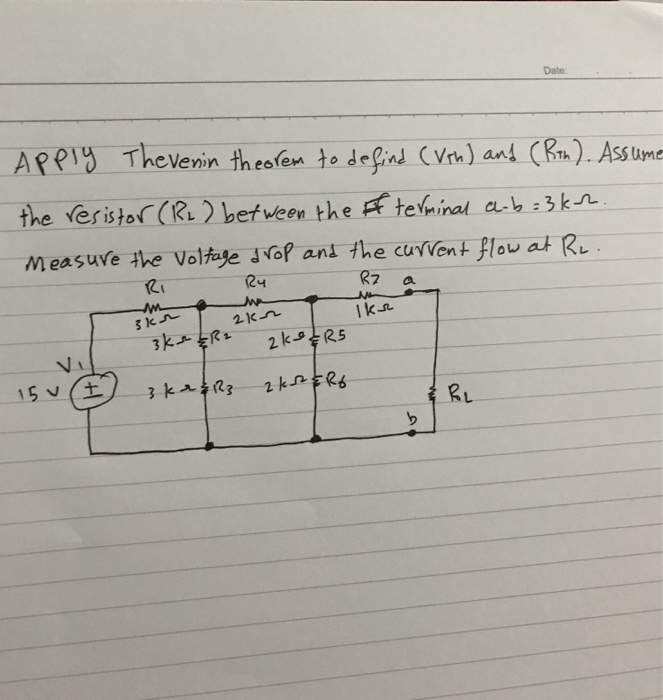 Date:
APPly Thevenin theorem to defind (Vth) and (RTh). Assume
the resistor (RL) between the terminal a-b = 3kΩ.
Measure the voltage drop and the current flow at RL.
R1 R4 R7 a
3kΩ 2kΩ 1kΩ
3kΩ R2 2kΩ R5
V1
15 V ± 3kΩ R3 2kΩ R6 RL
b